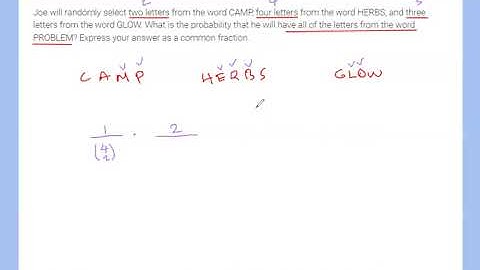 Joe will randomly select two letters from the word CAMP, four letters from the word HERBS, and three
letters from the word GLOW. What is the probability that he will have all of the letters from the word
PROBLEM? Express your answer as a common fraction.
CAMP HERBS GLOW
1 · 2
(4 2)